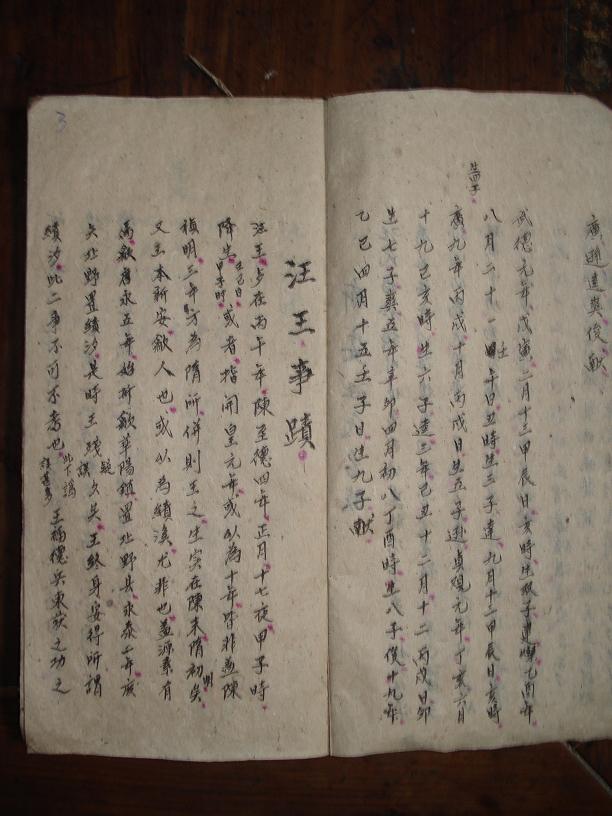 廣遜逵爽俊獻
武德元年戊寅二月十三甲辰日亥時生
八月二十一
午日丑時生三子達九月十二甲辰日亥時
生四子
廣九年丙戌十月丙戌日生五子遜貞觀元年丁亥六月
十九己亥時生六子逵三年己丑十二月十二丙戌日卯
生七子爽五年辛卯四月初八丁酉時生八子俊十九年
乙巳四月十五壬子日生九子獻
汪王事蹟
汪王歲在丙午年陳至德四年正月十七夜甲子時
降生
壬子日
甲子時
或者指開皇元年或以為十年皆非蓋陳
禎明三年方為隋所併則王之生實在陳末隋初矣
明
又云本新安歙人也或以為績溪尤非也蓋源素有
為歙唐永五年始析歙華陽鎮置北野縣永泰二年廢
矣北野置績汐是時王殘
疑誤
久矣王終身安得所謂
績汐此二事不可不考也
此下
王福德與東嶽之功之
3